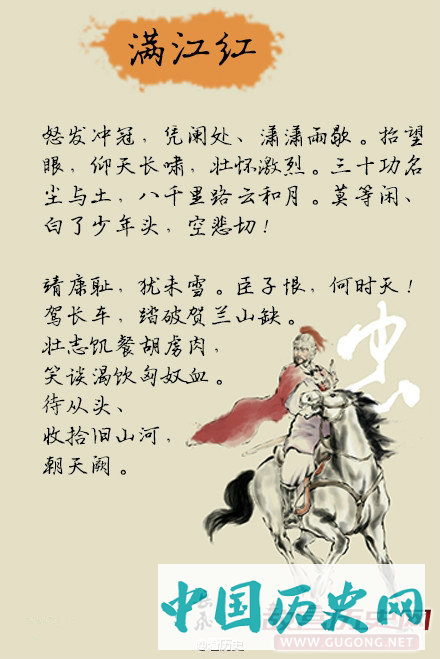 满江红
怒发冲冠，凭闲处、潇潇雨歇。抬望
眼，仰天长啸，壮怀激烈。三十功名
尘与土，八千里路云和月。莫等闲、
白了少年头，空悲切！
靖康耻，犹未雪。臣子恨，何时天！
驾长车，踏破贺兰山缺。
壮志饥餐胡虏肉，
笑谈渴饮匈奴血。
待从头、
收拾旧山河，
朝天阙。
忠
中国历史网
WWW.GUGONG.NET